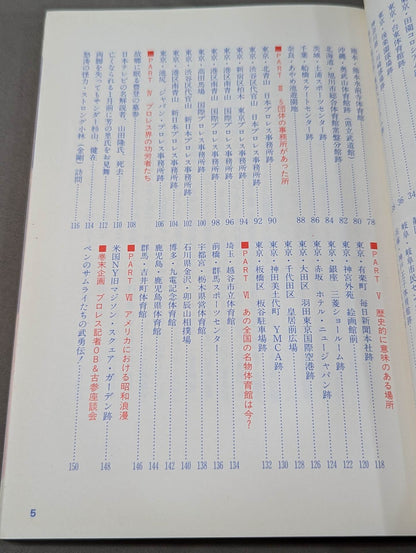 熊本・熊本水前寺体育館 78
沖縄・奥武山体育館跡（県立武道館） 80
北海道・旭川市総合体育館常盤分館跡 82
茨城・土浦スポーツセンター跡 84
千葉・船橋スケートセンター跡 86
奈良・あやめ池遊園地 88
■PART Ⅲ 5団体の事務所があった所
東京・北青山 日本プロレス事務所跡 90
東京・渋谷区代官山 日本プロレス事務所跡 92
東京・新宿区柏木 東京プロレス事務所跡 94
東京・港区南青山 国際プロレス事務所跡 96
東京・高田馬場 国際プロレス事務所跡 98
東京・渋谷区代官山 新日本プロレス事務所跡 100
東京・港区南青山 新日本プロレス事務所跡 104
東京・池尻 ジャパン・プロレス事務所跡 106
■PART Ⅳ プロレス界の功労者たち
故郷に眠る豊登の墓参 108
日本テレビの名解説者、山田隆氏、死去 110
亡くなられる1カ月前に芳の里氏をお見舞 112
両腕を失ってもサンダー杉山、健在 114
怒涛の怪力・ストロング小林（金剛）訪問 116
■PART Ⅴ 歴史的に意味のある場所 118
東京・有楽町 毎日新聞本社跡 120
東京・神宮外苑 絵画館前 122
東京・銀座 三菱ショールーム跡 124
東京・赤坂 ホテル・ニュージャパン跡 126
東京・大田区 羽田東京国際空港跡 128
東京・千代田区 皇居前広場
東京・神田美土代町 YMCA跡 130
東京・板橋区 板谷駐車場跡 132
■PART Ⅵ あの全国の名物体育館は今？
埼玉・越谷市立体育館 134
前橋・群馬スポーツセンター 136
宇都宮・栃木県営体育館 138
石川県金沢・卯辰山相撲場 140
博多・九電記念体育館 142
鹿児島・鹿児島県体育館 144
群馬・吉井町体育館 146
■PART Ⅶ アメリカにおける昭和浪漫
米国NY旧マジソン・スクェア・ガーデン跡 148
■巻末企画 プロレス記者OB＆古参座談会
ペンのサムライたちの武勇伝！ 150
5